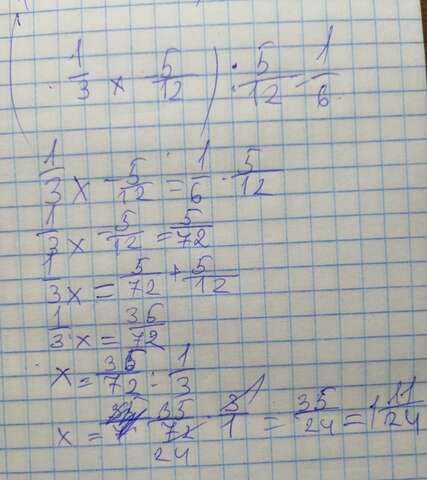 ( 1/3 x - 5/12 ) : 5/12 = 1/6
1/3 x - 5/12 = 1/6 · 5/12
1/3 x - 5/12 = 5/72
1/3 x = 5/72 + 5/12
1/3 x = 36/72
x = 36/72 : 1/3
x = 35/72 · 3/1 = 35/24 = 1 11/24
24